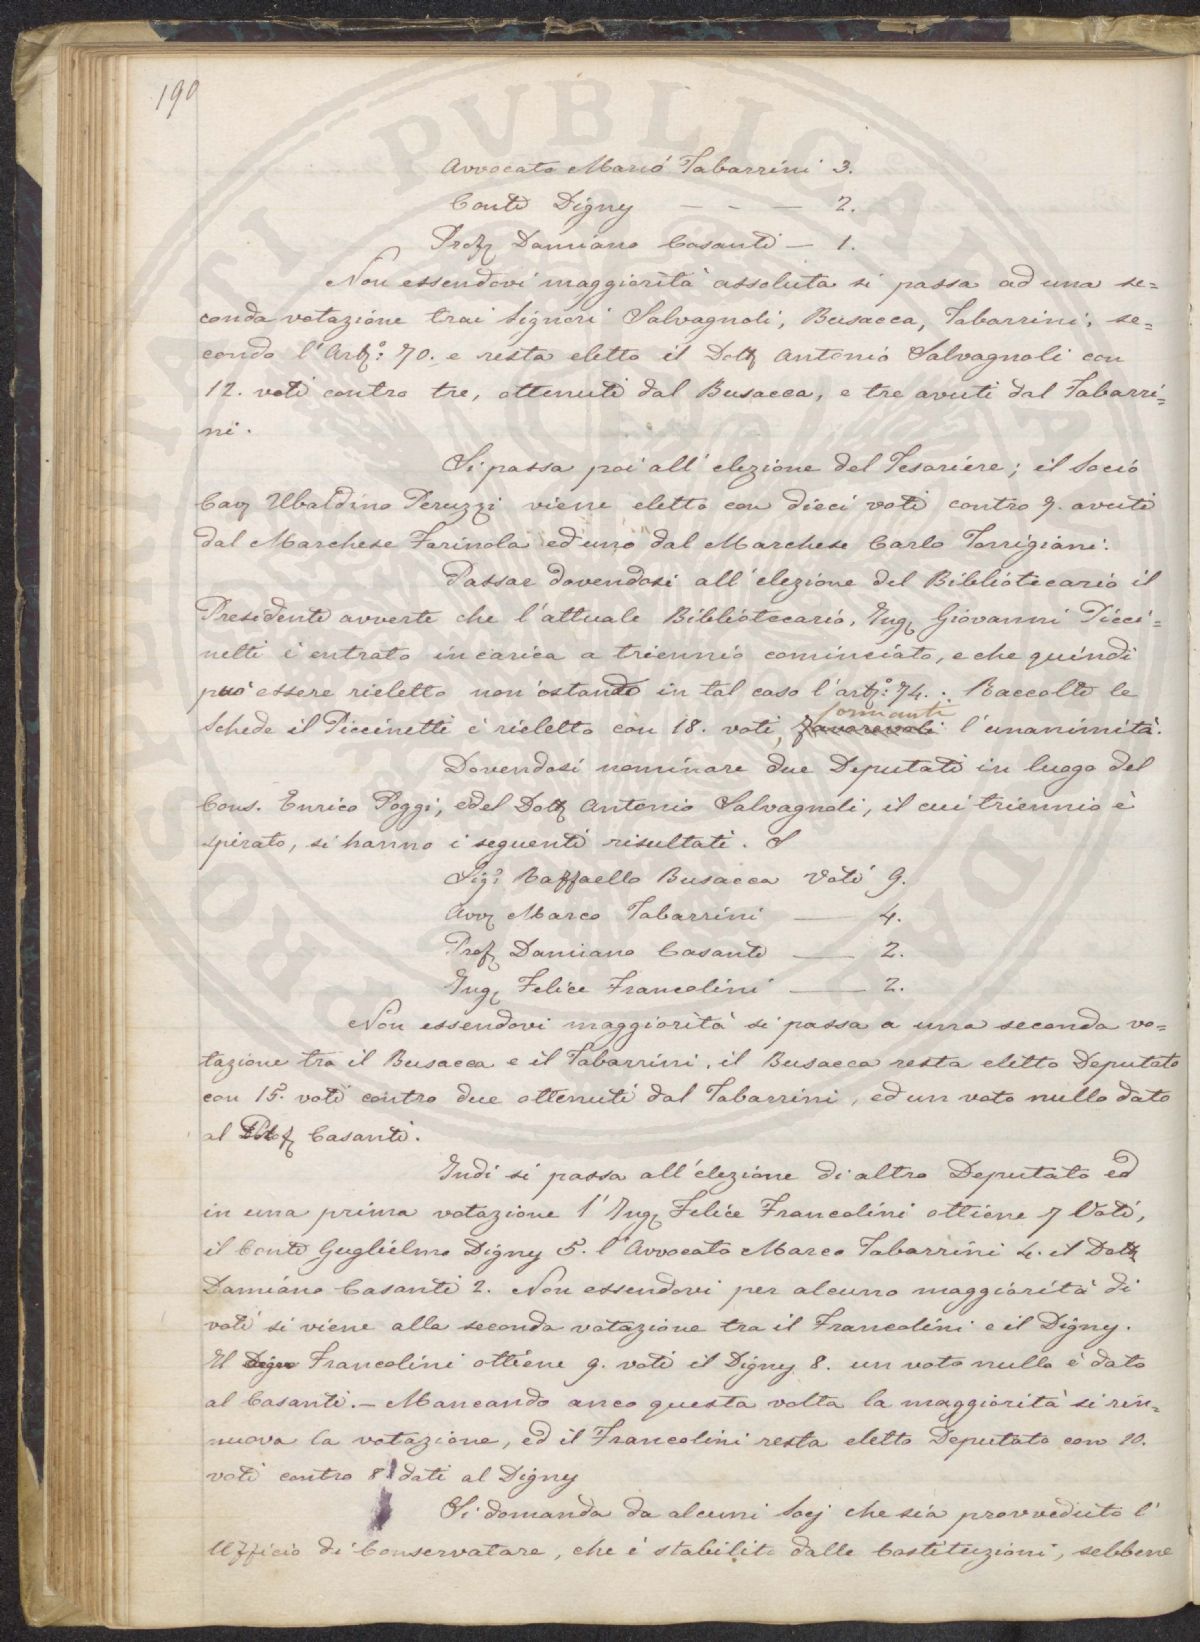 190
Avvocato Mario Tabarrini 3.
Conte Digny — - — 2.
Prof. Damiano Casanti — 1.
Non essendovi maggiorità assoluta si passa ad una se=
conda votazione trai Signori Salvagnoli, Busacca, Tabarrini, se=
condo l'Art.º: 70. e resta eletto il Dott. Antonio Salvagnoli con
12. voti contro tre, ottenuti dal Busacca, e tre avuti dal Tabarri=
ni.
Si passa poi all'elezione del Tesoriere; il Socio
Cav. Ubaldino Peruzzi viene eletto con dieci voti contro 7. avuti
dal Marchese Farinola ed uno dal Marchese Carlo Torrigiani.
Passar dovendosi all'elezione del Bibliotecario il
Presidente avverte che l'attuale Bibliotecario, Ing. Giovanni Picci=
netti è entrato in carica a triennio cominciato, e che quindi
può essere rieletto non'ostante in tal caso l'art.º: 74. . Raccolte le
formanti
Schede il Piccinetti è rieletto con 18. voti, favorevoli l'unanimità.
Dovendosi nominare due Deputati in luogo del
Cons. Enrico Poggi, e del Dott. Antonio Salvagnoli, il cui triennio è
spirato, si hanno i seguenti risultati. S
Sig.r Raffaello Busacca Voti 9.
Avv. Marco Tabarrini — 4.
Prof. Damiano Casanti — 2.
Ing. Felice Francolini — 2.
Non essendovi maggiorità si passa a una seconda vo=
tazione tra il Busacca e il Tabarrini, il Busacca resta eletto Deputato
con 15. voti contro due ottenuti dal Tabarrini, ed un voto nullo dato
al Prof. Casanti.
Indi si passa all'elezione di altro Deputato ed
in una prima votazione l'Ing. Felice Francolini ottiene 7 Voti,
il Conte Guglielmo Digny 5. l'Avvocato Marco Tabarrini 4. il Dott.
Damiano Casanti 2. Non essendovi per alcuno maggiorità di
voti si viene alla seconda votazione tra il Francolini e il Digny.
Il Digny Francolini ottiene 9. voti il Digny 8. un voto nullo è dato
al Casanti. — Mancando anco questa volta la maggiorità si rin=
nuova la votazione, ed il Francolini resta eletto Deputato con 10.
voti contro 8 dati al Digny
Si domanda da alcuni Socj che sia provveduto l'
Ufficio di Conservatore, che è stabilito dalle Costituzioni, sebbene
PROPRIETATI PVBLICAE DA